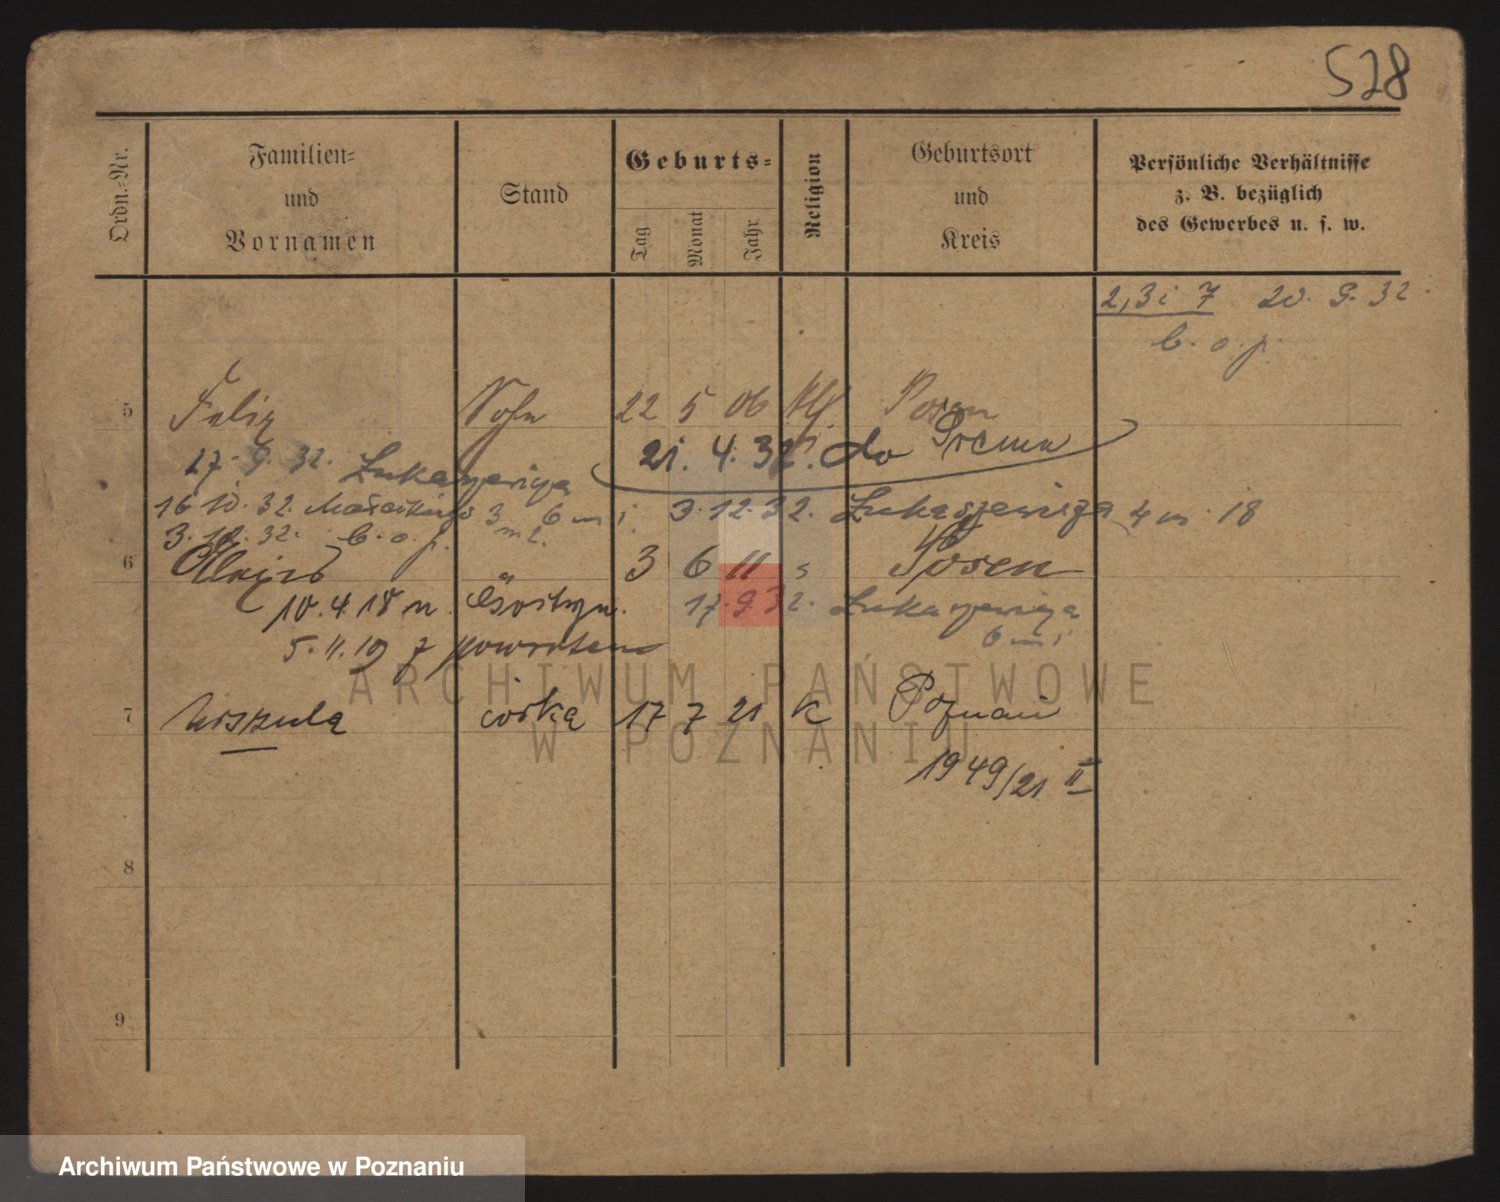 528
Ordn.-Nr.
Familien-
und
Vornamen
Stand
Geburts-
Tag
Monat
Jahr
Religion
Geburtsort
und
Kreis
Persönliche Verhältnisse
z. B. bezüglich
des Gewerbes u. s. w.
2, 3 i 7 20. 9. 32.
b. o. p.
5 Felix Sohn 22 5 06 Posen
21. 4. 32. do Śremu
17. 9. 32.
16 10. 32. 3 6 m i 3. 12. 32. 4 m. 18
3. 12. 32. b. o. p.
6 3 6 11 Posen
10. 4. 18 n. Gostyn. 17. 9. 32.
6 m i
5. 11. 19 z powrotem
ARCHIWUM PAŃSTWOWE
7 Urszula córka 17 7 21 k Poznań
W POZNANIU
1949/21 II
8
9
Archiwum Państwowe w Poznaniu